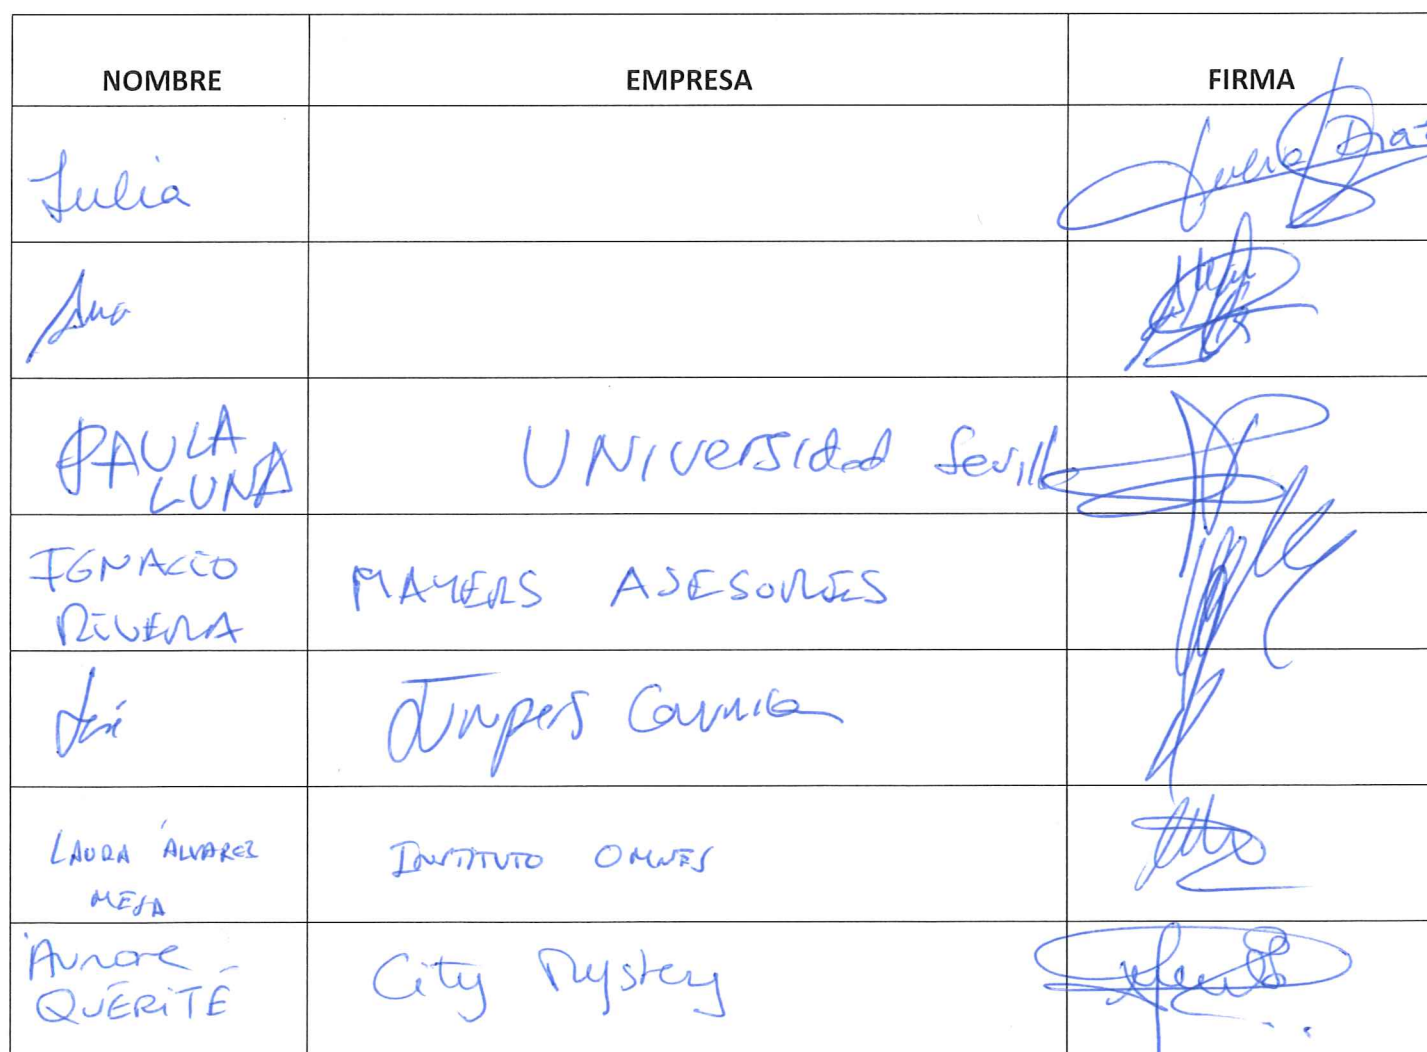 NOMBRE EMPRESA FIRMA
Julia
Ana
PAULA
LUNA
UNIVERSIDAD Sevilla
IGNACIO
RIVERA
MAYERS ASESORES
José
LAURA ÁLVAREZ
MESA
INSTITUTO OMNES
Aurore
QUÉRITÉ
City Mystery